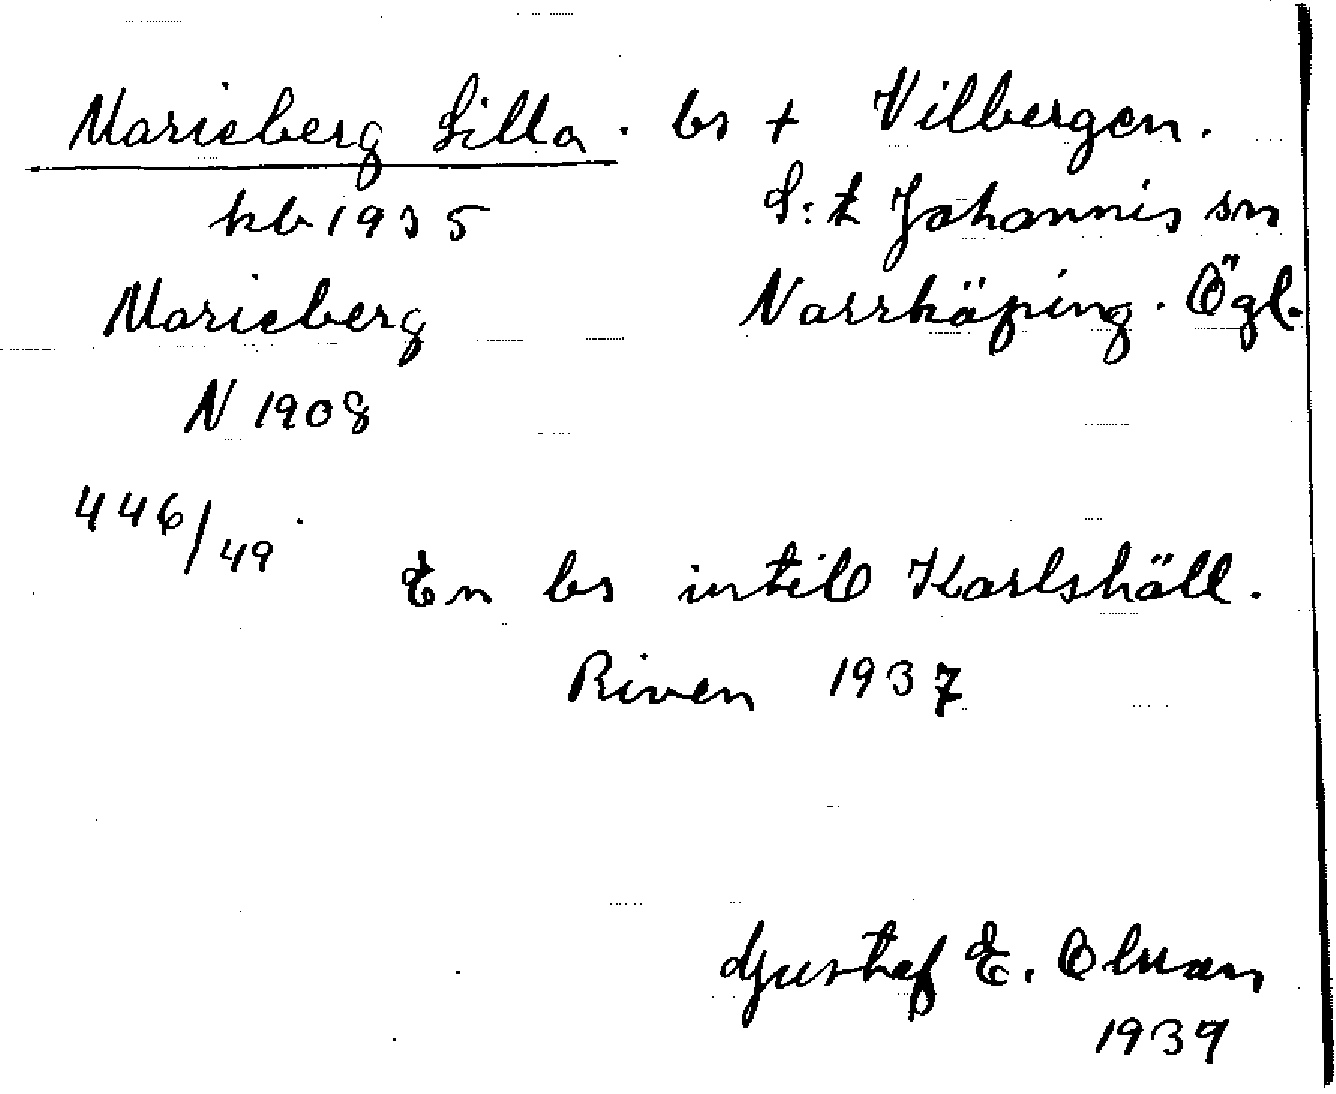 Marieberg Lilla. bs + Vilbergen.
kb 1935
S:t Johannis sn
Marieberg
Norrköping. Ögl.
N 1908
446/49
En bs intill Karlshäll.
Riven 1937
Gustaf E. Olsson
1939